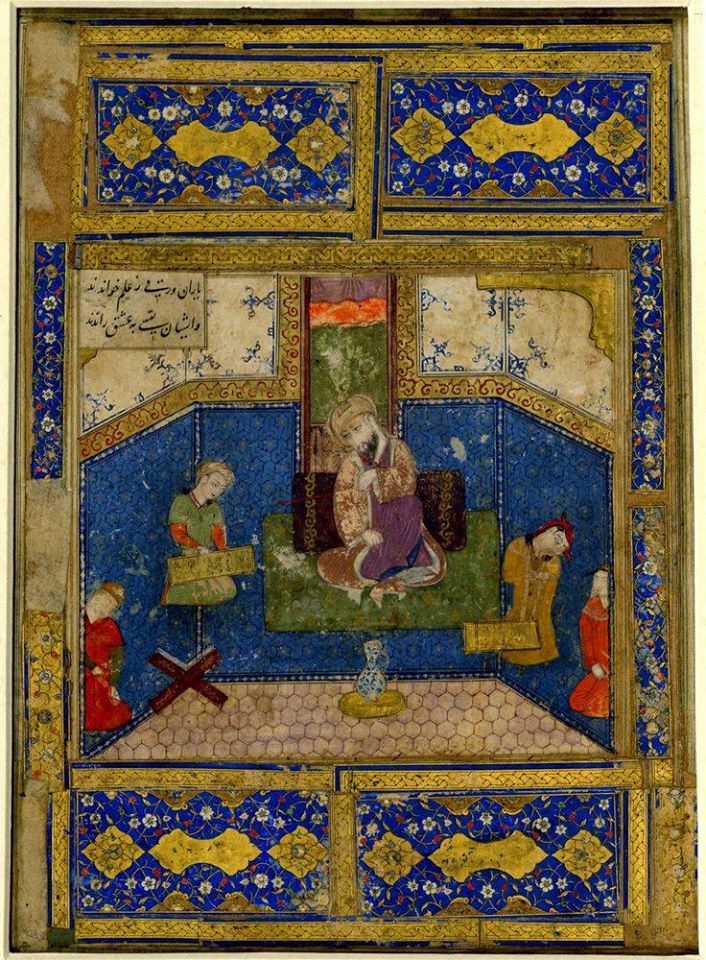 یاران ورقی ز علم خواندند
وایشان سبقی به عشق راندند